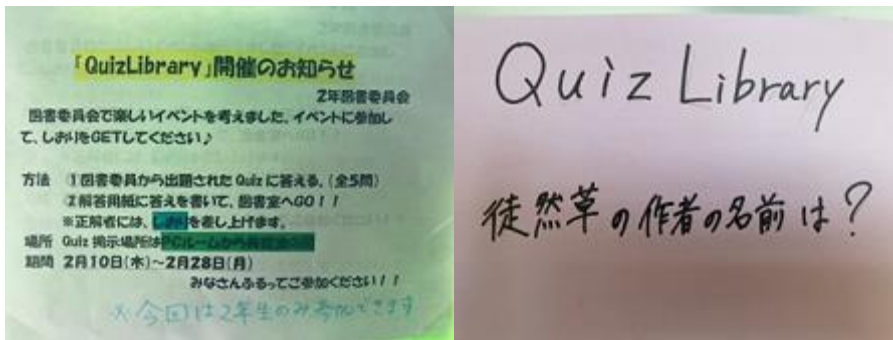 「QuizLibrary」開催のお知らせ
2年図書委員会
図書委員会で楽しいイベントを考えました。イベントに参加し
て、しおりをGETしてください♪
方法 ①図書委員から出題された Quiz に答える。(全5問)
②解答用紙に答えを書いて、図書室へGO!!
※正解者には、しおりを差し上げます。
場所 Quiz 掲示場所はPCルームから
期間 2月10日(木)~2月28日(月)
みなさんふるってご参加ください!!
※今回は2年生のみ参加できます
Quiz Library
徒然草の作者の名前は?